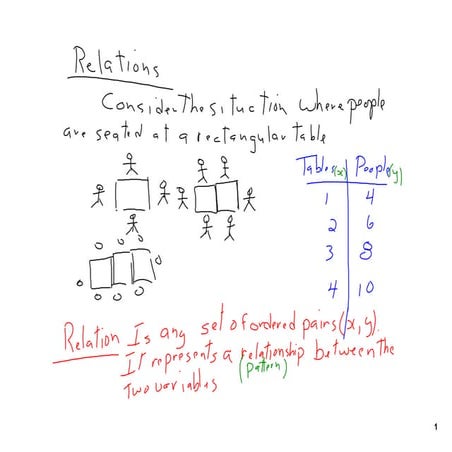 Relations
Consider the situction where people
are seated at a rectangular table
Tables(x) People(y)
1 4
2 6
3 8
4 10
Relation Is any set of ordered pairs (x, y).
It represents a relationship between the
(pattern)
two variables
1